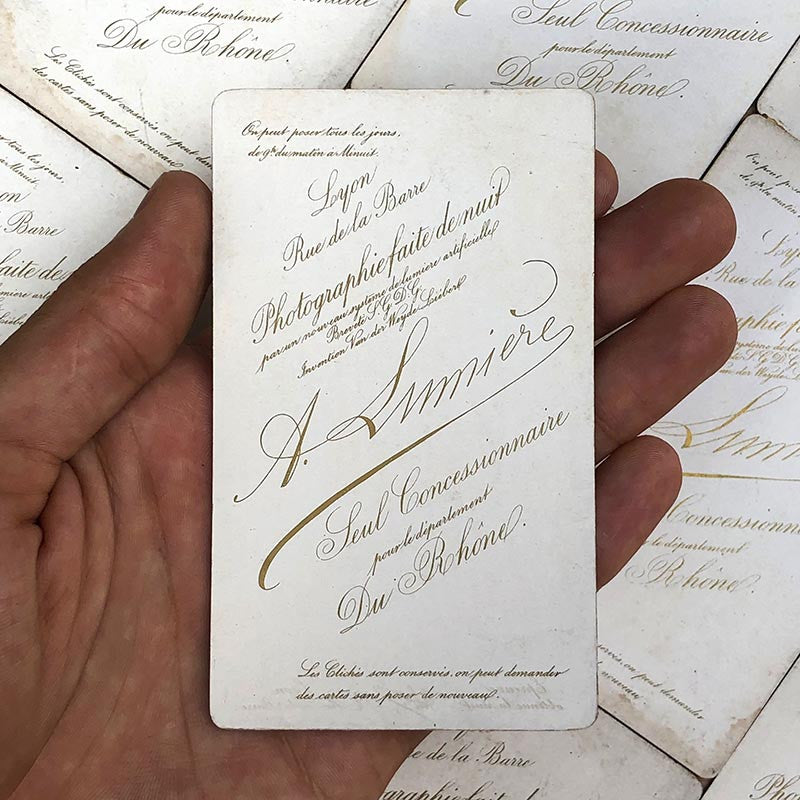 On peut poser tous les jours,
de 9h. du matin à Minuit.
Lyon
Rue de la Barre
Photographie faite de nuit
par un nouveau système de lumière artificielle
Breveté S.G.D.G.
Invention Van der Weyde Liébert
A. Lumière
Seul Concessionnaire
pour le département
Du Rhône.
Les Clichés sont conservés, on peut demander
des cartes sans poser de nouveau.
pour le département
Du Rhône.
Les Clichés sont conservés, on peut
des cartes sans poser de nouveau
Seul Concessionnaire
pour le département
Du Rhône.
Barre
faite de
Rue de la Barre
Concessionna
le département
Rhône.
on peut demander
nouveau
e de la Barre
Pho